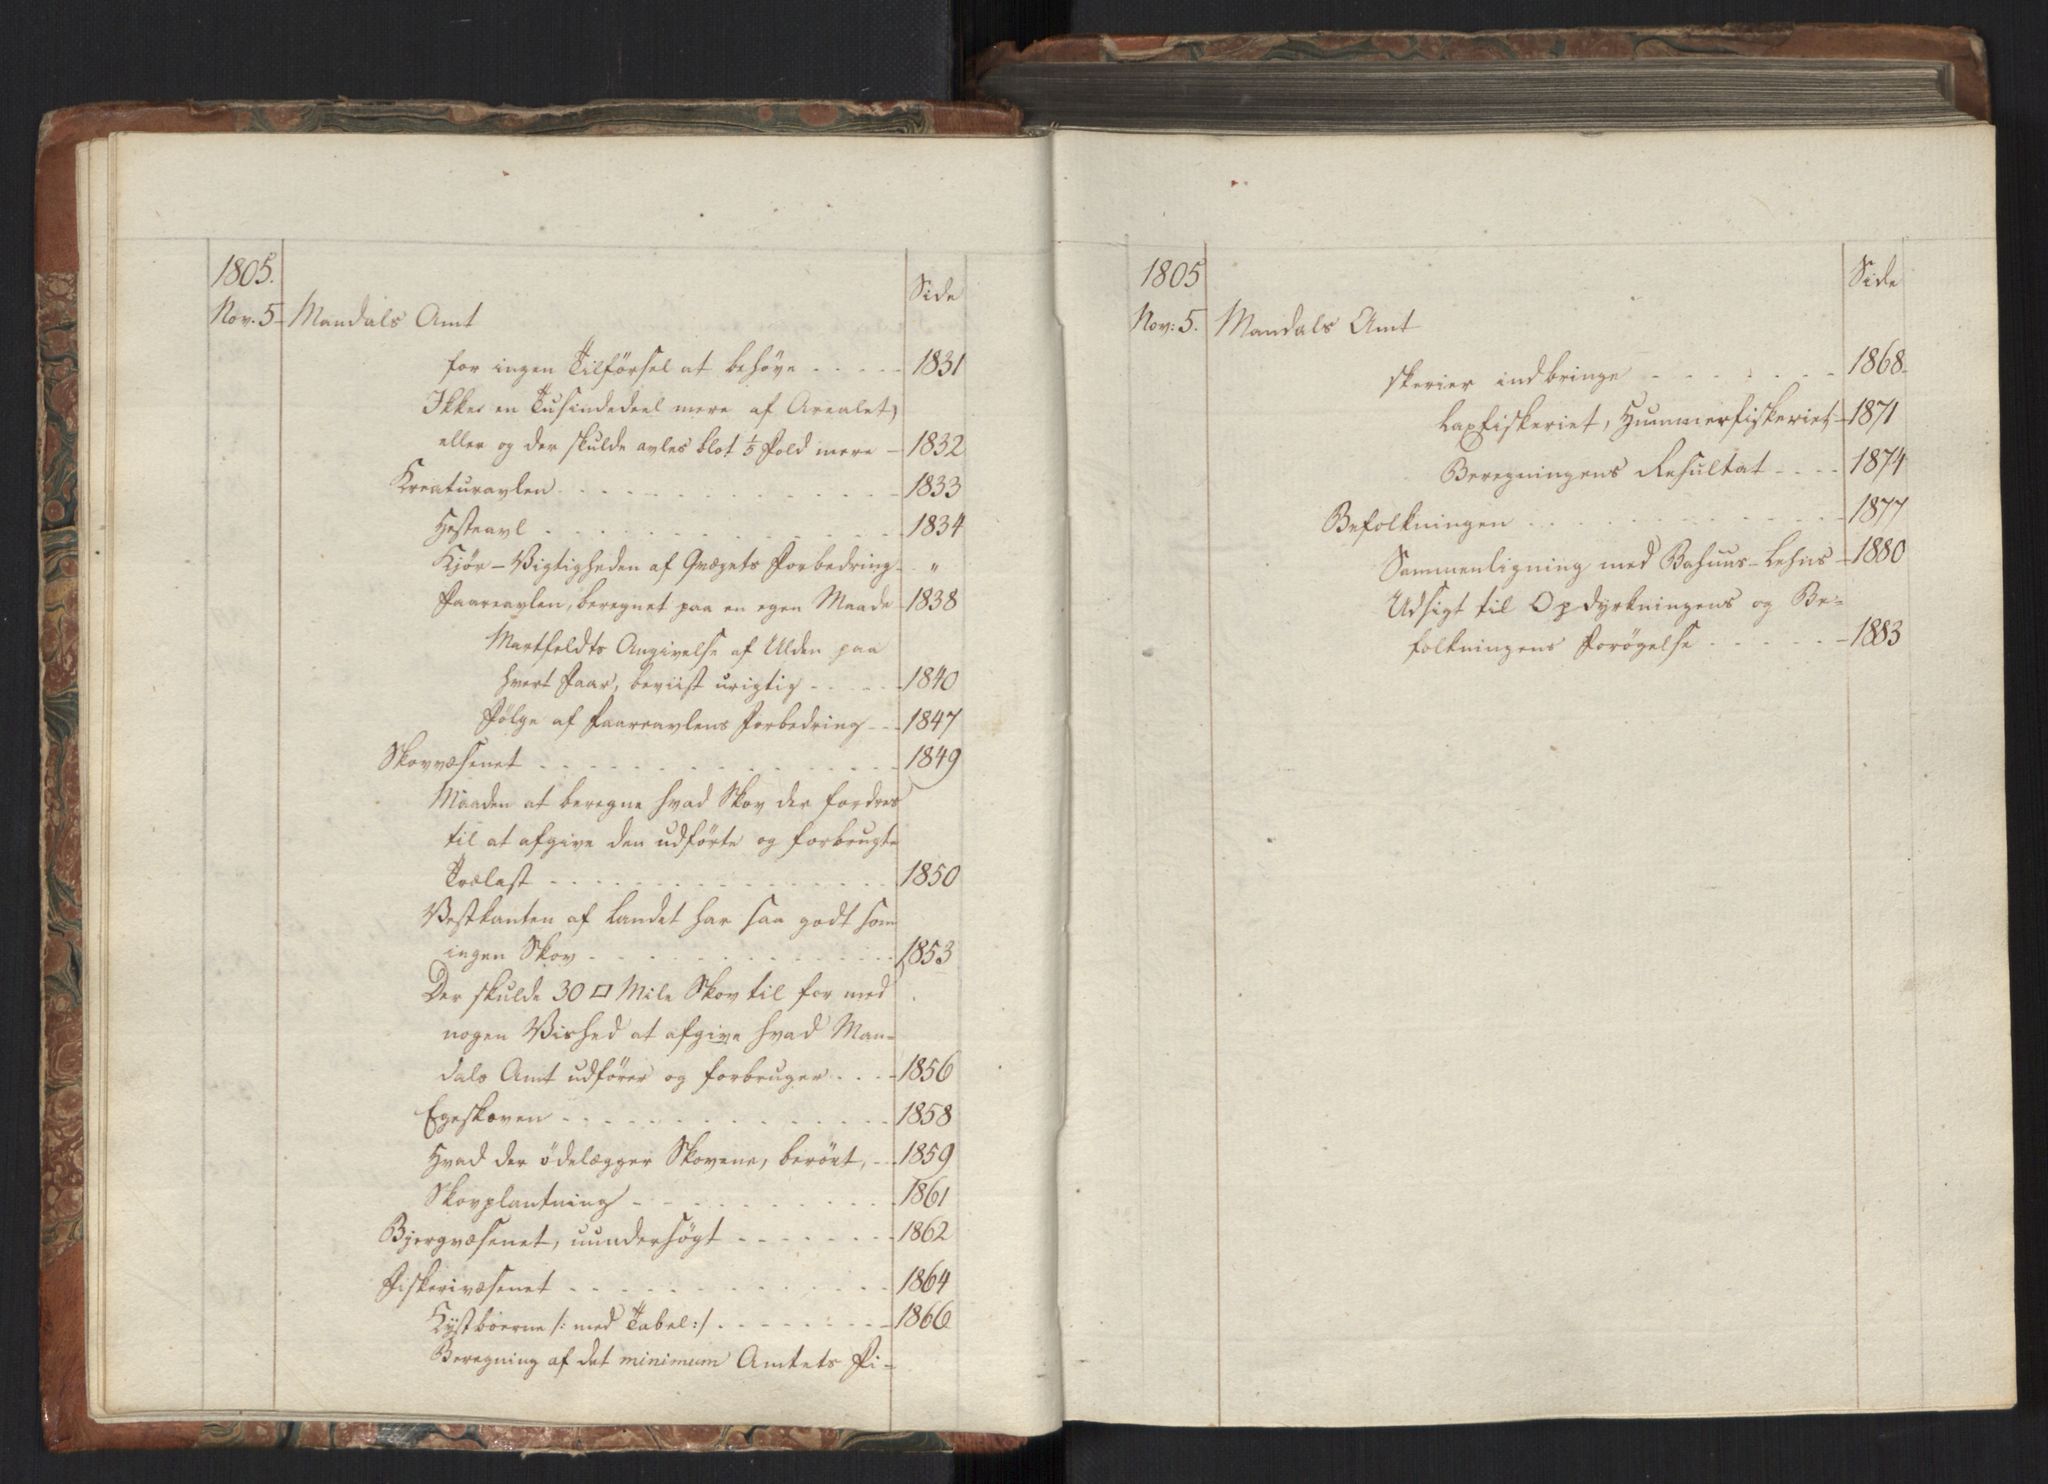 1805.
Side
Nov. 5 Mandals Amt
for ingen Tilförsel at behöve - - - - - 1831
Ikke en Tusindedeel mere af Arealet,
eller og der skulde avles blot 1/5 Fold mere - 1832
Kreaturavlen - - - - - 1833
Hesteavl - - - - - 1834
Kjör - Vigtigheden af Qvægets Forbedring - "
Faareavlen, beregnet paa en egen Maade - 1838
Martfeldts Angivelse af Ulden paa
hvert Faar, beviist urigtig - - - - 1840
Fölge af Faareavlens Forbedring - - 1847
Skovvæsenet - - - - - 1849
Maaden at beregne hvad Skov der fordres
til at afgive den udförte og forbrugte
Trælast - - - - - 1850
Vestkanten af Landet har saa godt som
ingen Skov - - - - - 1853
Der skulde 30 □ Mile Skov til for med
nogen Vished at afgive hvad Man=
dals Amt udförer og forbruger - - - 1856
Egeskoven - - - - - 1858
Hvad der ödelægger Skovene, berört, - - 1859
Skovplantning - - - - - 1861
Bjergvæsenet, uundersögt - - - - - 1862
Fiskerivæsenet - - - - - 1864
Kystboerne /: med Tabel :/ - - - - - 1866
Beregning af det minimum Amtets Fi=
1805
Side
Nov: 5. Mandals Amt
skerier indbringe - - - - - 1868
Laxfiskeriet, Hummerfiskeriet - 1871
Beregningens Resultat - - - - 1874
Befolkningen - - - - - 1877
Sammenligning med Bahuus-Lehns - 1880
Udsigt til Opdyrkningens og Be=
folkningens Forögelse - - - - - 1883